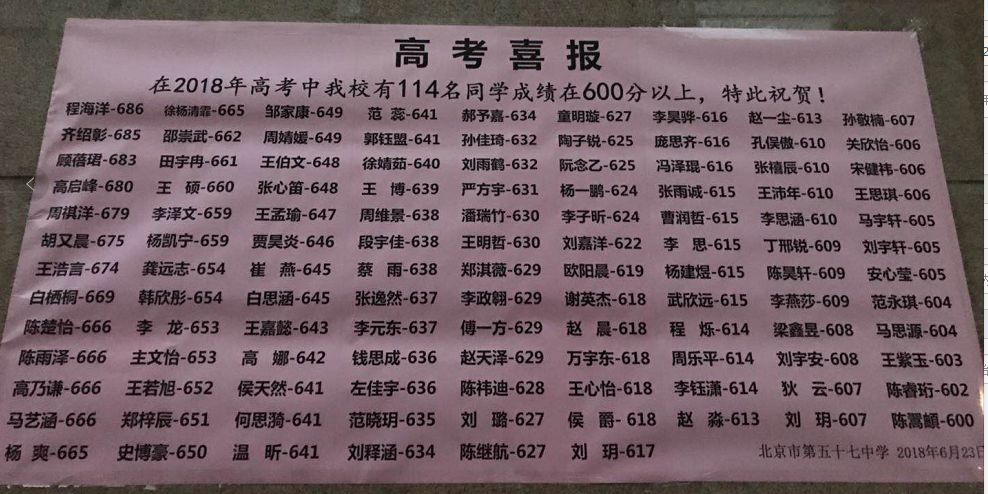 高考喜报
在2018年高考中我校有114名同学成绩在600分以上，特此祝贺！
程海洋-686 徐杨清霏-665 邹家康-649 范 蕊-641 郝予嘉-634 童明璇-627 李昊骅-616 赵一尘-613 孙敬楠-607
齐绍彰-685 邵崇武-662 周婧媛-649 郭钰盟-641 孙佳琦-632 陶子锐-625 庞思齐-616 孔俣傲-610 关欣怡-606
顾蓓珺-683 田宇冉-661 王伯文-648 徐婧茹-640 刘雨鹤-632 阮念乙-625 冯泽琨-616 张禧辰-610 宋健祎-606
高启峰-680 王 硕-660 张心笛-648 王 博-639 严方宇-631 杨一鹏-624 张雨诚-615 王沛年-610 王思琪-606
周祺洋-679 李泽文-659 王孟瑜-647 周维景-638 潘瑞竹-630 李子昕-624 曹润哲-615 李思涵-610 马宇轩-605
胡又晨-675 杨凯宁-659 贾昊炎-646 段宇佳-638 王明哲-630 刘嘉洋-622 李 思-615 丁邢锐-609 刘宇轩-605
王浩言-674 龚远志-654 崔 燕-645 蔡 雨-638 郑淇薇-629 欧阳晨-619 杨建煜-615 陈昊轩-609 安心莹-605
白栖桐-669 韩欣彤-654 白思涵-645 张逸然-637 李政翱-629 谢英杰-618 武欣远-615 李燕莎-609 范永琪-604
陈楚怡-666 李 龙-653 王嘉懿-643 李元东-637 傅一方-629 赵 晨-618 程 烁-614 梁鑫昱-608 马思源-604
陈雨泽-666 主文怡-653 高 娜-642 钱思成-636 赵天泽-629 万宇东-618 周乐平-614 刘宇安-608 王紫玉-603
高乃谦-666 王若旭-652 侯天然-641 左佳宇-636 陈祎迪-628 王心怡-618 李钰潇-614 狄 云-607 陈睿珩-602
马艺涵-666 郑梓辰-651 何思漪-641 范晓玥-635 刘 璐-627 侯 爵- 618 赵 淼-613 刘 玥-607 陈蒿頔-600
杨 爽-665 史博豪-650 温 昕-641 刘释涵-634 陈继航-627 刘 玥-617
北京市第五十七中学 2018年6月23日